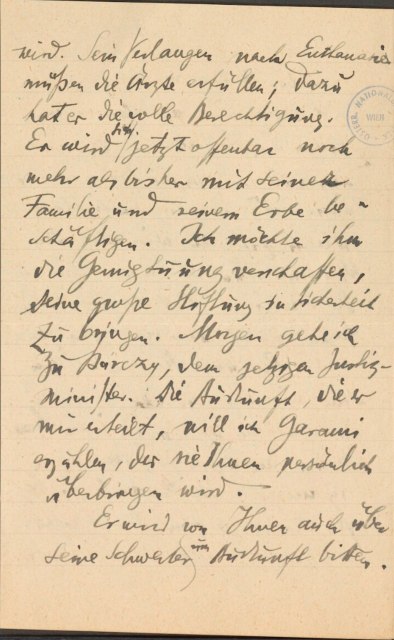 wird. Sein Verlangen nach Euthanasie
müßen die Ärzte erfüllen; dazu
hat er die volle Berechtigung.
Er wird sich jetzt offenbar noch
mehr als bisher mit seiner
Familie und seinem Erbe be-
schäftigen. Ich möchte ihm
die Genugtuung verschaffen,
seine große Stiftung in Sicherheit
zu bringen. Morgen gehe ich
zu Barczy, dem jetzigen Justiz-
minister. Die Auskunft, die er
mir erteilt, will ich Garami
erzählen, der sie Ihnen persönlich
überbringen wird.
Er wird von Ihnen auch über
seine Schwester um Auskunft bitten.
NATIONAL
WIEN